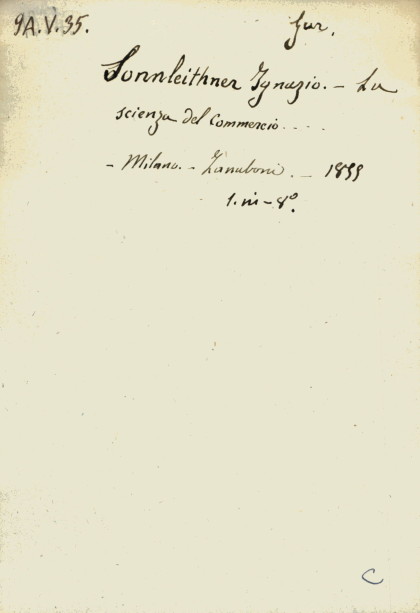 9A.V.35.
Jur.
Sonnleithner Ignazio. - La
scienza del Commercio. . . .
- Milano. - Zanaboni. - 1855
1. in - 8º.
C